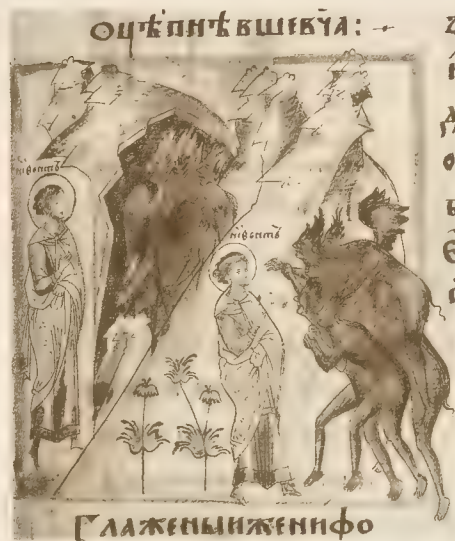 оцѣпнѣвшевчⷭ҇а:
ниѳонтъ
ниѳонтъ
блаженыиженифо